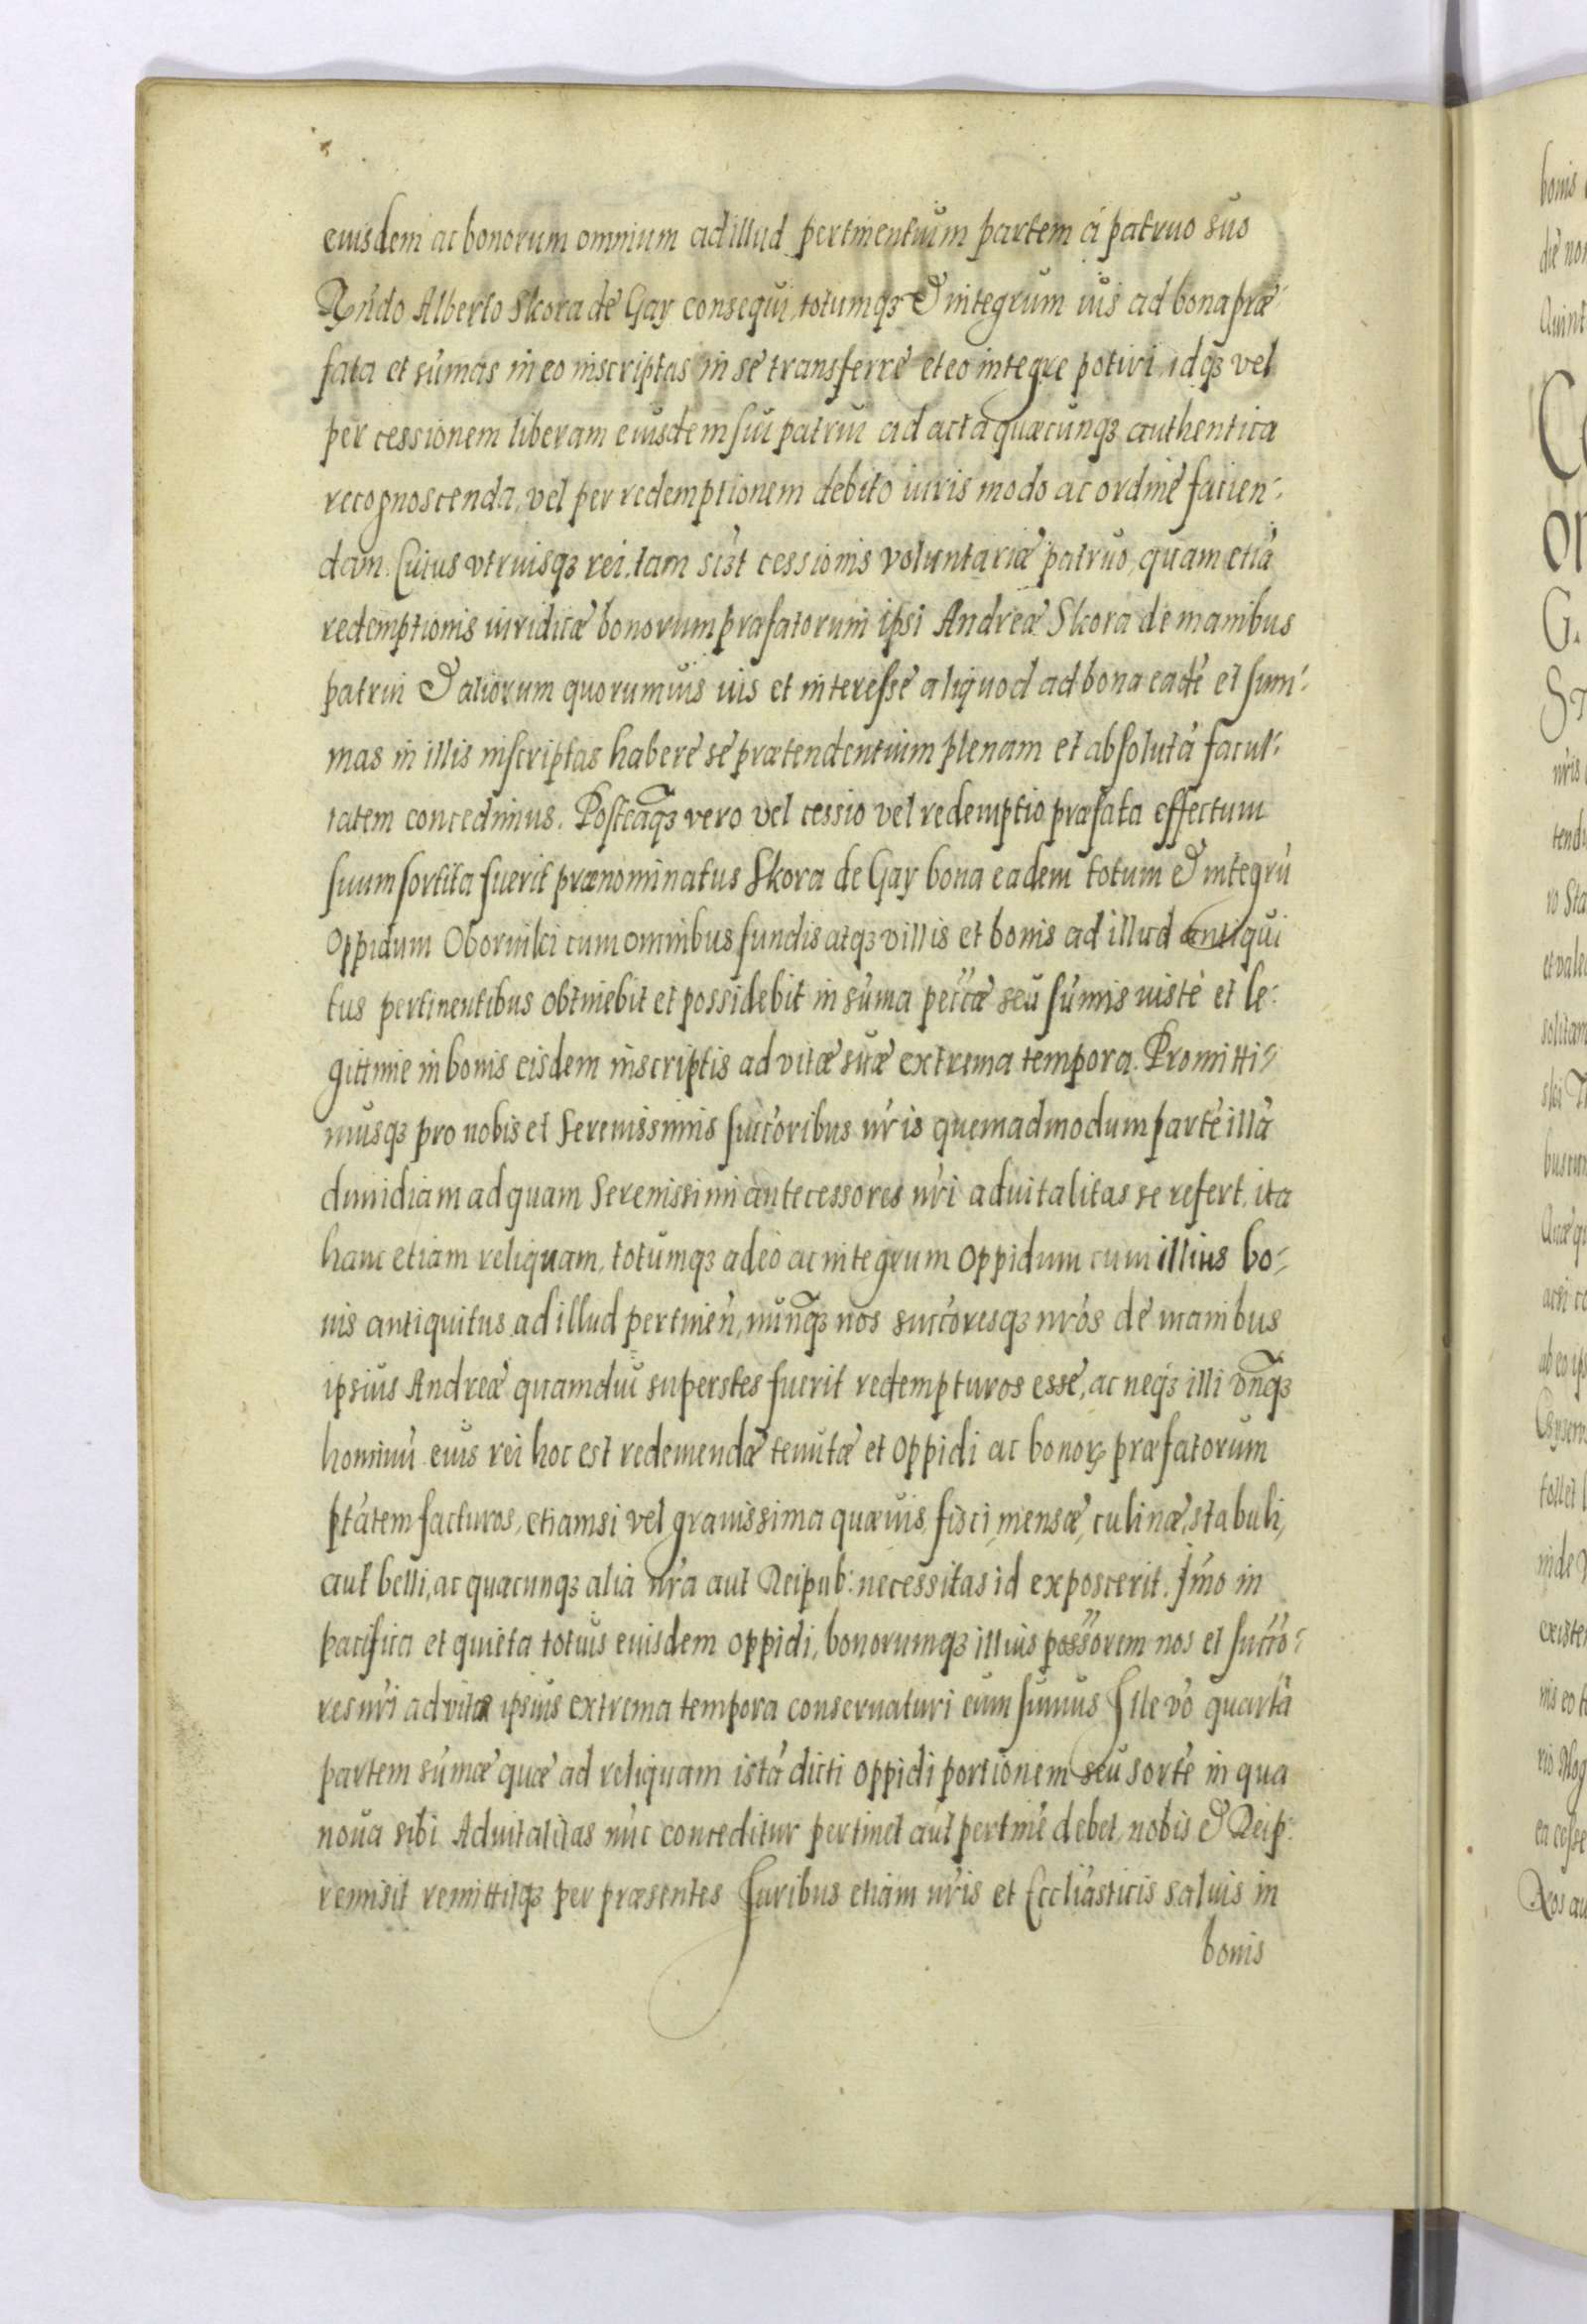 eiusdem ac bonorum omnium ad illud pertinentium partem á patruo suo
Rñdo Alberto Skora de Gay consequi, totumqz & integrum ius ad bona præ-
fata et sumas in eo inscriptas in se transferre et eo integre potiri idqz vel
per cessionem liberam eiusdem sui patrui ad acta quæcunqz authentica
recognoscenda, vel per redemptionem debito iuris modo ac ordine facien-
dam. Cuius vtriusqz rei, tam sczt cessionis voluntariæ patruo, quam etiã
redemptionis iuridicæ bonorum præfatorum ipsi Andreæ Skora de manibus
patrui & aliorum quorumuis ius et interesse aliquod ad bona eadē et sum-
mas in illis inscriptas habere se prætendentium plenam et absolutã facul-
tatem concedimus. Posteaqz vero vel cessio vel redemptio præfata effectum
suum sortita fuerit prænominatus Skora de Gay bona eadem totum & integrũ
Oppidum Oborniki cum omnibus fundis atqz villis et bonis ad illud antiqui
tus pertinentibus obtinebit et possidebit in suma peccæ seu sumis iuste et le-
gittime in bonis eisdem inscriptis ad vitæ suæ extrema tempora. Promitti-
musqz pro nobis et Serenissimis succoribus nr̃is quemadmodum partē illã
dimidiam ad quam Serenissimi antecessores nr̃i aduitalitas se refert, ita
hanc etiam reliquam, totumqz adeo ac integrum Oppidum cum illius bo-
nis antiquitus ad illud pertineñ, nunqz nos succoresqz nr̃os de manibus
ipsius Andreæ quamdiu superstes fuerit redempturos esse, ac neqz illi vnqz
hominũ eius rei hoc est redemendæ tenutæ et Oppidi ac bonoꝝ præfatorum
ptãtem facturos, etiamsi vel grauissima quæuis, fisci, mensæ, culinæ, stabuli,
aut belli, ac quacunqz alia nr̃a aut Reipub: necessitas id exposcerit. Imo in
pacifica et quieta totius eiusdem oppidi, bonorumqz illius possorem nos et succo-
res nr̃i ad vitæ ipsius extrema tempora conseruaturi eum sumus Ille vo quartã
partem sumæ quæ ad reliquam istã dicti Oppidi portionem seu sortē in qua
noua sibi Aduitalitas nũc conceditur pertinet aut pertinē debet, nobis & Reip:
remisit remittitqz per præsentes Juribus etiam nr̃is et Eccliasticis saluis in
bonis